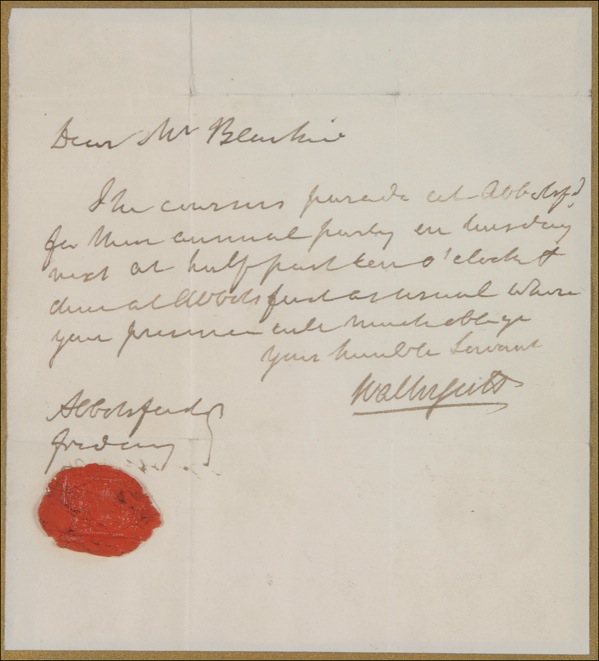 Dear Mr Blaikie
The coursers parade at Abbotsfd.
for their annual party on tuesday
next at half past ten o'clock &
dine at Abbotsford as usual where
your presence will much oblige
Your humble Servant
Walter Scott
Abbotsford
friday